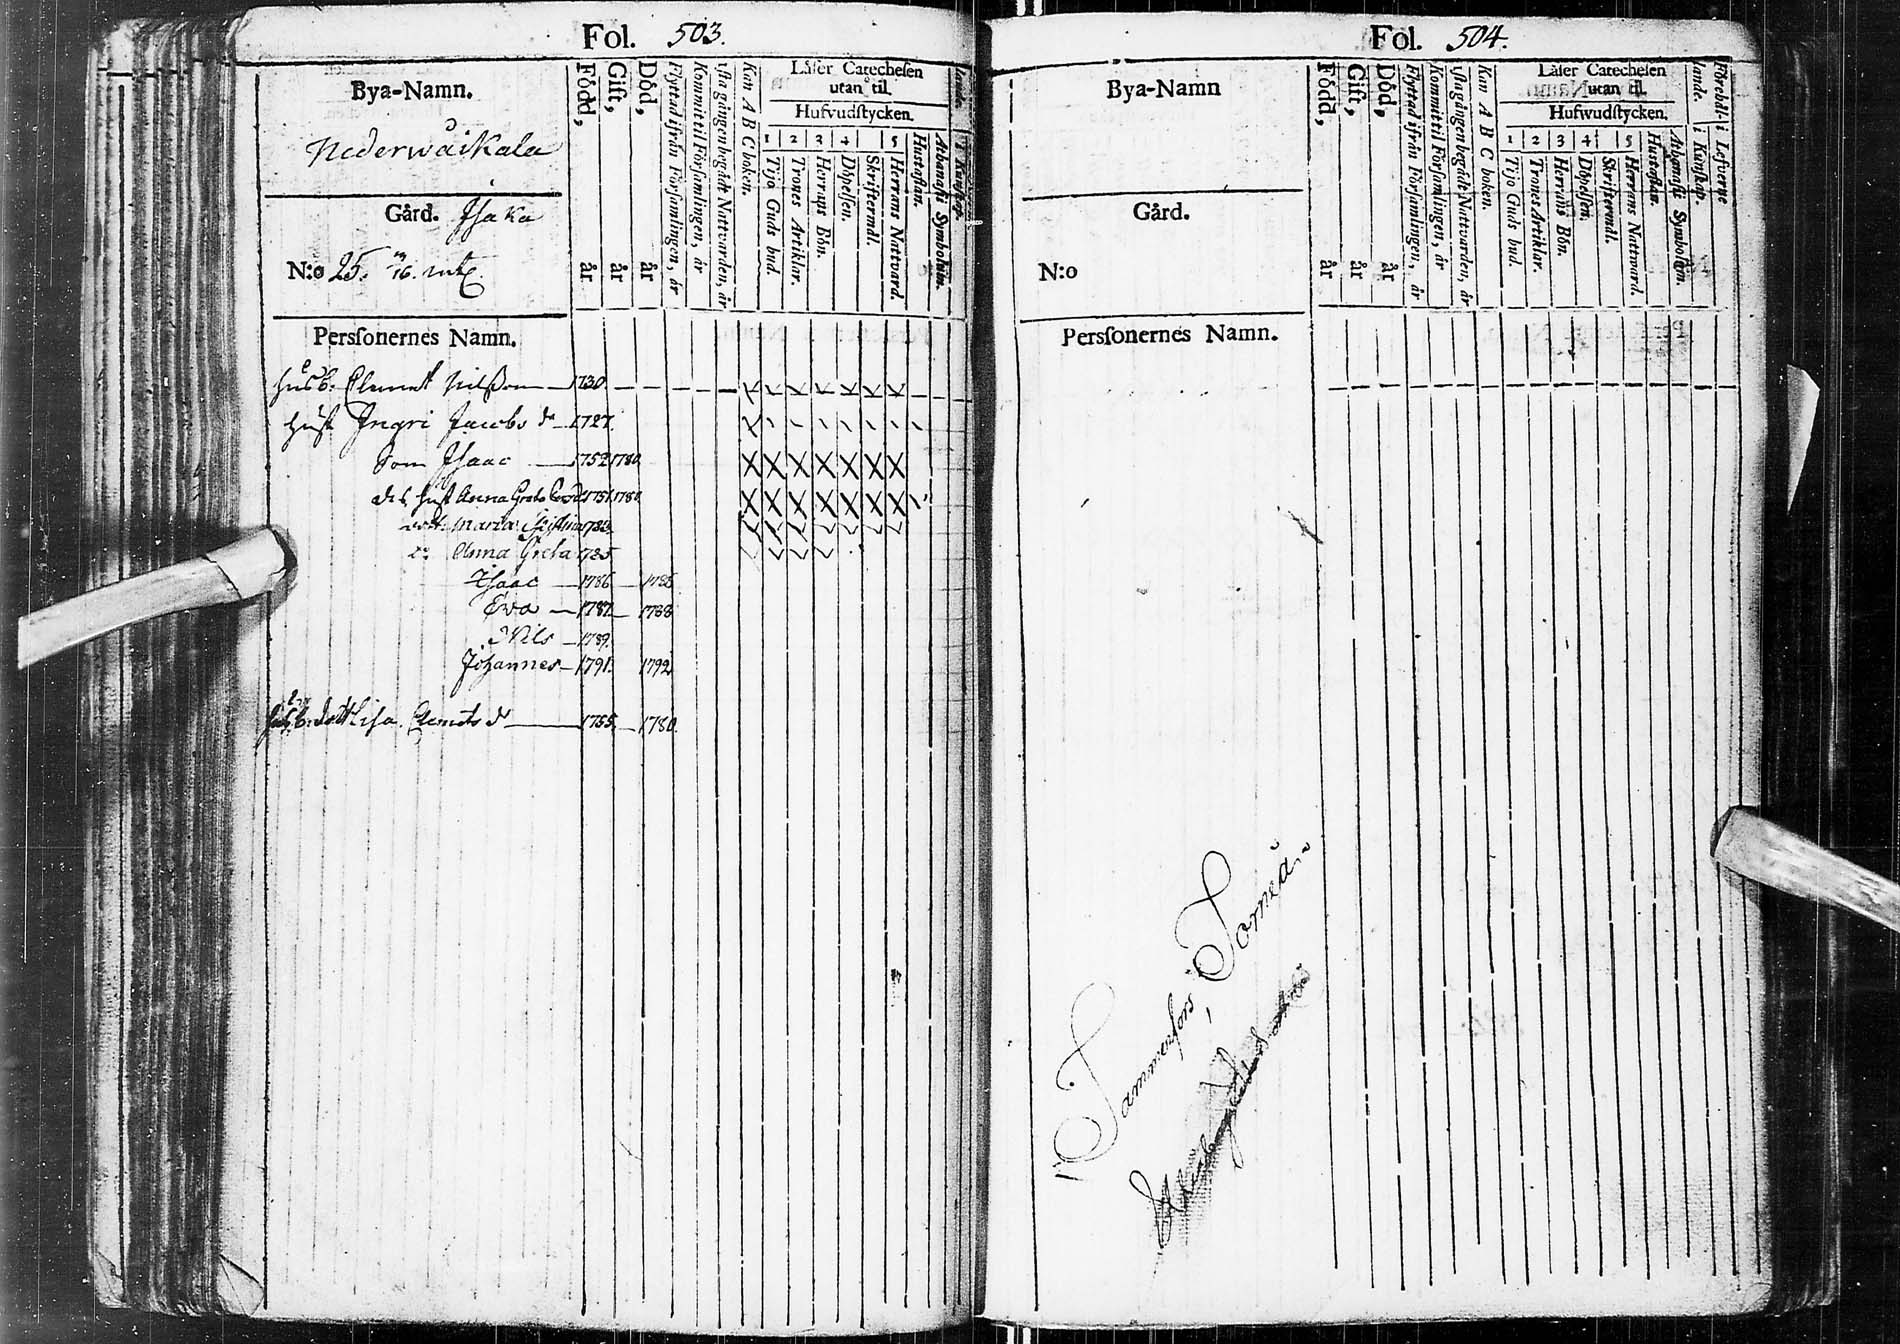 Fol. 503.
Bya-Namn.
Nederwäikala
Gård. Isaka
N:o 25.
Född, år
Gift, år
Död, år
Flyttad ifrån Församlingen, år
Kommit til Församlingen, år
Kan A B C boken.
Låser Catechesen
utan til.
Hufvudstycken.
1 2 3 4 5
Tijo Guds bud.
Trones Artiklar.
Herrans Bön.
Döpelsen.
Skriftermål.
Herrans Nattvard.
Hustaflan.
Athanasii Symbolum.
i Kunskap.
Perssonernes Namn.
husb. Clemet Nilsson 1730
Hust Ingri Jacobs dr 1727.
Son Isaac 1752 1780
des hust Anna Greta 1751 1780
Maria 1783
do Anna Greta 1785
Isaac 1786 1786
Eva 1787 1788
Nils 1789
Johannes 1791. 1792
Lisa Clemets dr 1755. 1780.
Fol. 504.
Bya-Namn
Gård.
N:o
Född, år
Gift, år
Död, år
Flyttad ifrån Församlingen, år
Kommit til Församlingen, år
Kan A B C boken.
Låser Catechesen
utan til.
Hufwudstycken.
1 2 3 4 5
Tijo Guds bud.
Trones Artiklar.
Herrans Bön.
Döpelsen.
Skriftermål.
Herrans Nattward.
Hustaflan.
Athanasii Symbolum.
i Kunskap.
i Lefverne
Perssonernes Namn.
Tammerfors, Torneå